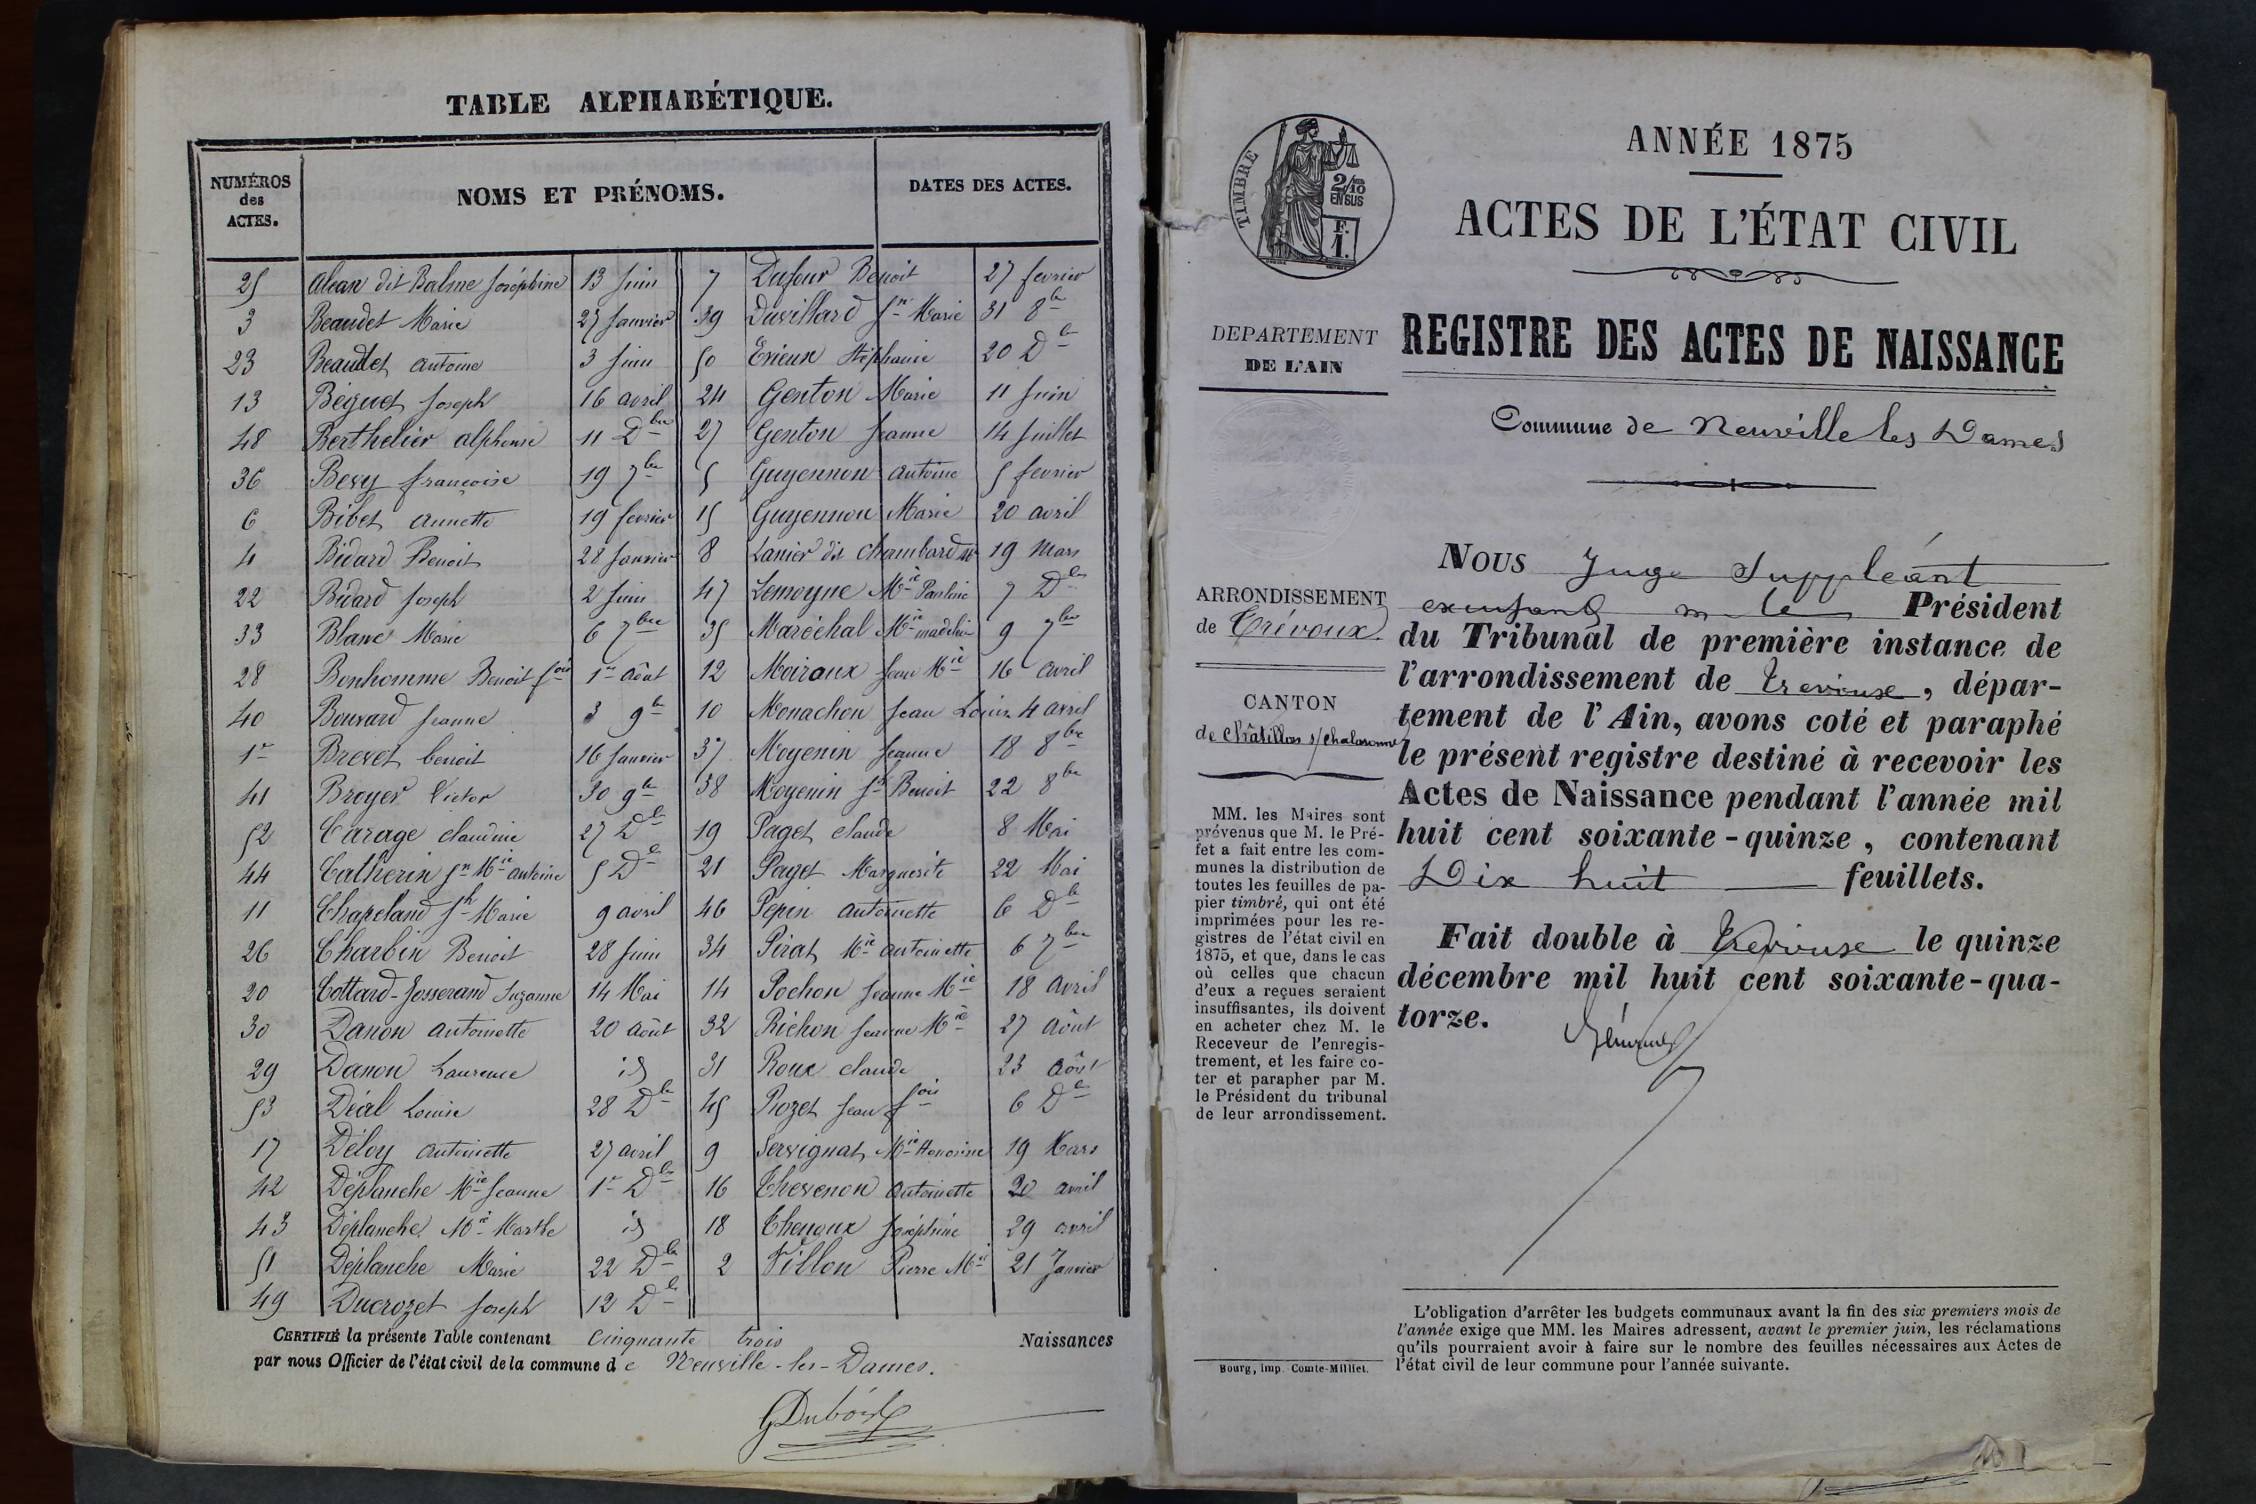 TABLE ALPHABÉTIQUE.
NUMÉROS des ACTES.
NOMS ET PRÉNOMS.
DATES DES ACTES.
25 Alean dit Balme Joséphine 13 Juin
3 Beaudet Marie 25 Janvier
23 Beaudet Antoine 3 Juin
13 Béguet Joseph 16 avril
48 Berthelier Alphonse 11 Dbre
36 Bevy françoise 19 7bre
6 Bibet Annette 19 fevrier
4 Bidard Benoit 28 Janvier
22 Bidard Joseph 2 Juin
33 Blanc Marie 6 7bre
28 Bonhomme Benoit fois 1er Août
40 Bouvard Jeanne 3 9b
1er Brevet benoit 16 Janvier
41 Broyer Victor 30 9b
52 Carage claudine 27 Db
44 Catherin Jn Mie antoine 5 Db
11 Chapeland Jh Marie 9 avril
26 Charbin Benoit 28 Juin
20 Cottard-Josserand Suzanne 14 Mai
30 Danon Antoinette 20 Août
29 Danon Laurence id
53 Déal Louise 28 Db
17 Déloy Antoinette 27 avril
42 Déplanche Mie Jeanne 1er Db
43 Déplanche Mie Marthe id
51 Déplanche Marie 22 Db
49 Ducrozet Joseph 12 Db
7 Dufour Benoit 27 fevrier
39 Duvillard Jn Marie 31 8b
50 Erieux Stéphanie 20 Db
24 Genton Marie 11 Juin
27 Genton Jeanne 14 Juillet
5 Guyennon Antoine 5 fevrier
15 Guyennon Marie 20 avril
8 Lanier dit Chambard 19 Mars
47 Lemoyne Mie Pauline 7 Db
35 Maréchal Mie 9 7bre
12 Moiroux Jean Mie 16 avril
10 Monachon Jean Louis 4 avril
37 Moyenin Jeanne 18 8bre
38 Moyenin Jn Benoit 22 8bre
19 Paget claude 8 Mai
21 Paget Marguerite 22 Mai
46 Pepin Antoinette 6 Db
34 Pirat Mie Antoinette 6 7bre
14 Pochon Jeanne Mie 18 avril
32 Richon Jeanne Mie 27 Août
31 Roux claude 23 Août
45 Rozet Jean fois 6 Db
9 Servignat Mie Honorine 19 Mars
16 Thevenon Antoinette 20 avril
18 Thenoux Joséphine 29 avril
2 Villon Pierre Mie 21 Janvier
CERTIFIÉ la présente Table contenant cinquante trois Naissances
par nous Officier de l'état civil de la commune de Neuville-les-Dames.
GDubost
ANNÉE 1875
ACTES DE L'ÉTAT CIVIL
TIMBRE
2/10 EN SUS
F. 1.
DEPARTEMENT
DE L'AIN
REGISTRE DES ACTES DE NAISSANCE
Commune de Neuville les Dames
ARRONDISSEMENT
de Trévoux
CANTON
de Châtillon s/ Chalaronne
MM. les Maires sont
prévenus que M. le Pré-
fet a fait entre les com-
munes la distribution de
toutes les feuilles de pa-
pier timbré, qui ont été
imprimées pour les re-
gistres de l'état civil en
1875, et que, dans le cas
où celles que chacun
d'eux a reçues seraient
insuffisantes, ils doivent
en acheter chez M. le
Receveur de l'enregis-
trement, et les faire co-
ter et parapher par M.
le Président du tribunal
de leur arrondissement.
Bourg, imp. Comte-Milliet.
NOUS Juge Suppléant
m le Président
du Tribunal de première instance de
l'arrondissement de Trevoux, dépar-
tement de l'Ain, avons coté et paraphé
le présent registre destiné à recevoir les
Actes de Naissance pendant l'année mil
huit cent soixante-quinze, contenant
Dix huit feuillets.
Fait double à Trevoux le quinze
décembre mil huit cent soixante-qua-
torze.
L'obligation d'arrêter les budgets communaux avant la fin des six premiers mois de
l'année exige que MM. les Maires adressent, avant le premier juin, les réclamations
qu'ils pourraient avoir à faire sur le nombre des feuilles nécessaires aux Actes de
l'état civil de leur commune pour l'année suivante.